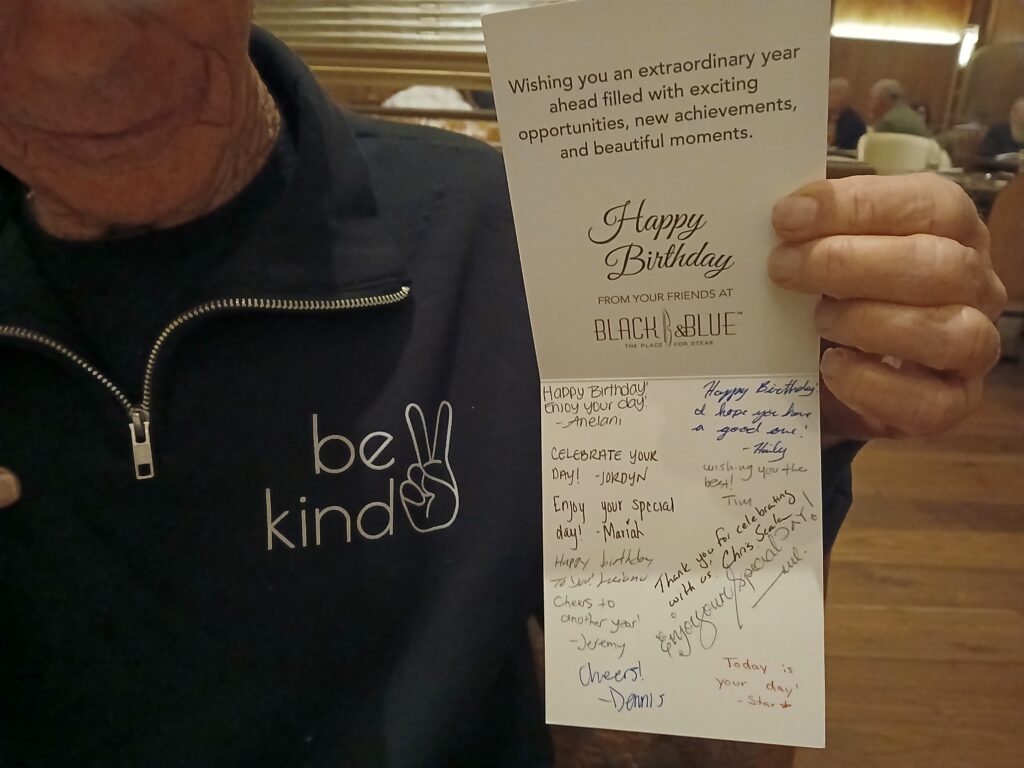 Wishing you an extraordinary year
ahead filled with exciting
opportunities, new achievements,
and beautiful moments.
Happy
Birthday
FROM YOUR FRIENDS AT
BLACK & BLUE™
THE PLACE FOR STEAK
be
kind
Happy Birthday!
Enjoy your day!
- Anelani
CELEBRATE YOUR
DAY! - JORDYN
Enjoy your special
day! - Mariah
Happy birthday
To you! Luciano
Cheers to
another year!
- Jeremy
Cheers!
- Dennis
Happy Birthday!
I hope you have
a good one!
wishing you the
best!
Tim
Thank you for celebrating
with us! Chris
Enjoy your special DAY!
Today is
your day!
- Star